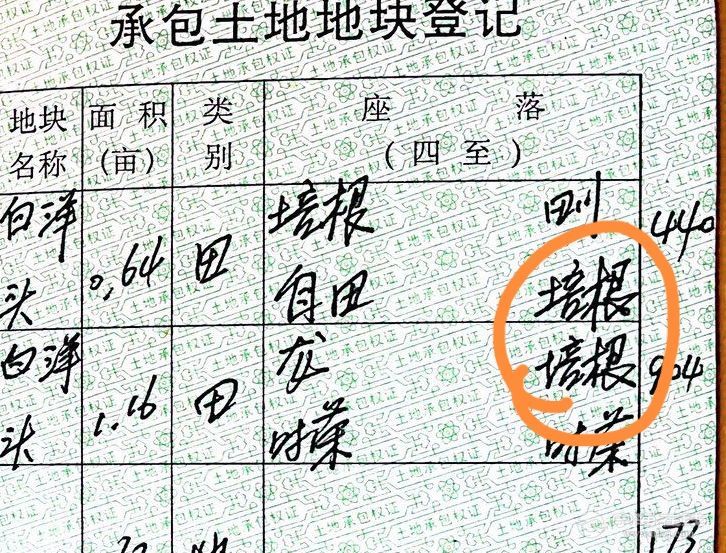 承包土地地块登记
地块名称 面积(亩) 类别 座落(四至)
白洋头 0.64 田 培根 田川 440
自田 培根
白洋头 1.16 田 龙 培根 904
时荣 时荣
173